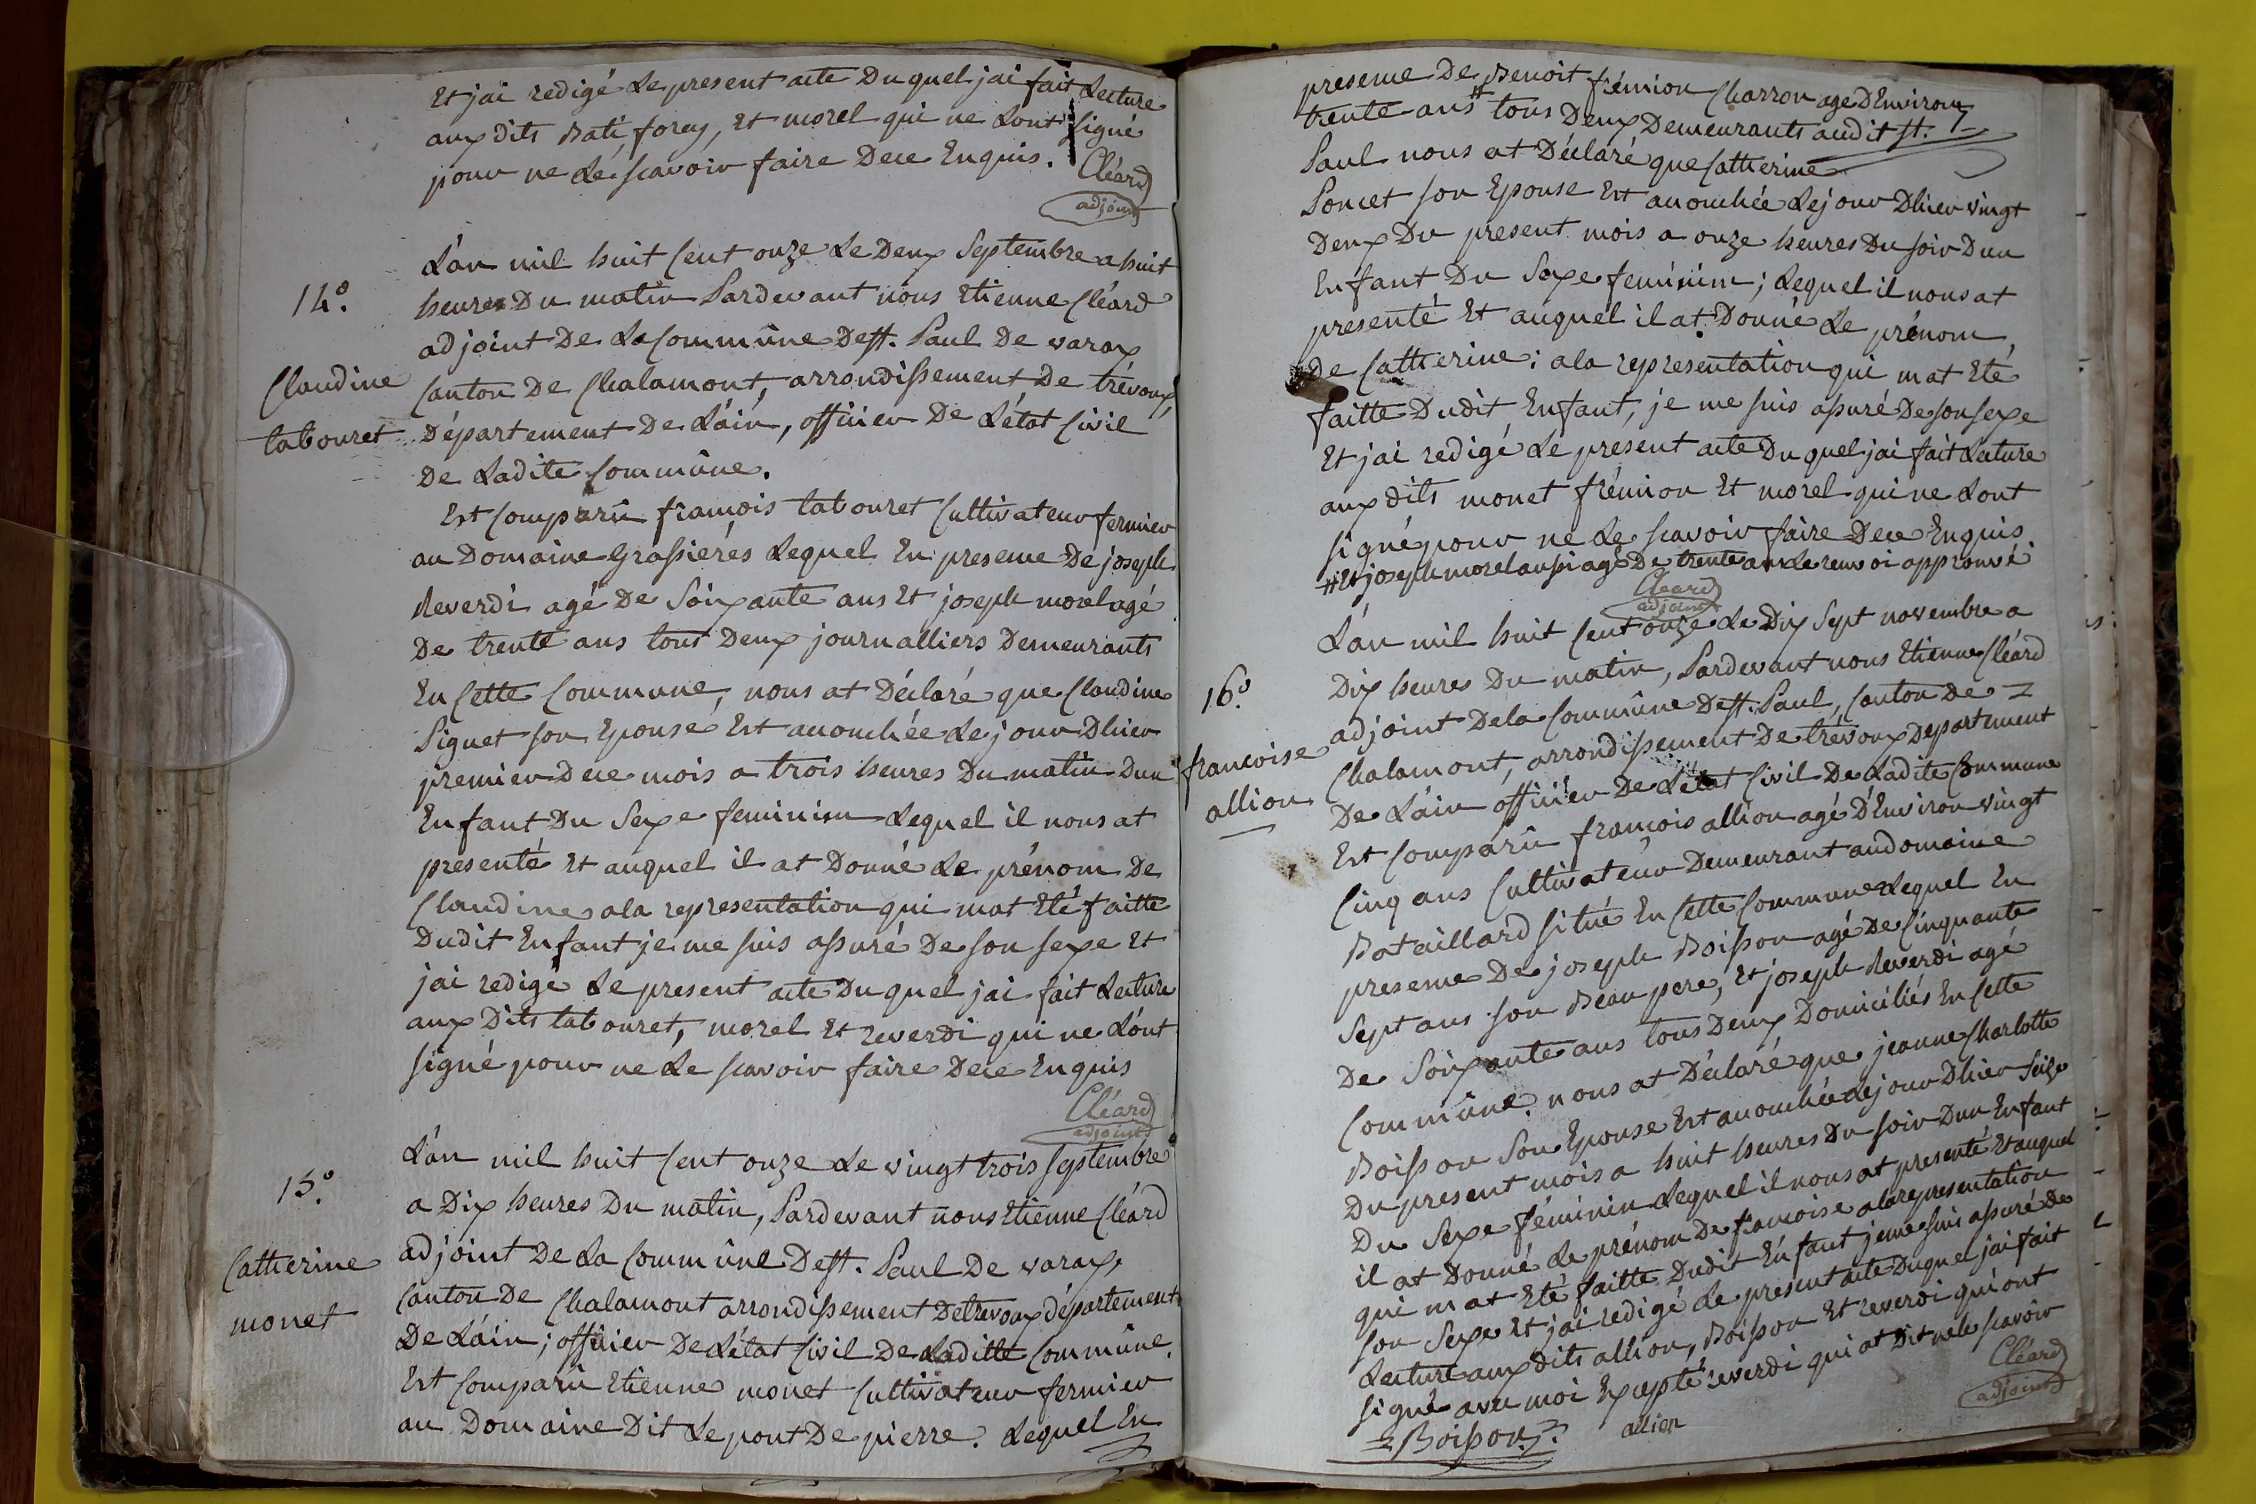 Et jai redigé Le present acte Du quel jai fait Lecture
aux dits Bati, foray, Et morel qui ne Lont signé
pour ne Le scavoir faire Dece Enquis. Cléard
adjoint
14.°
Claudine
tabouret
L'an mil huit Cent onze Le Deux Septembre a huit
heures Du matin Pardevant nous Etienne Cléard
adjoint De La Commûne De st. Paul De varax
Canton De Chalamont, arrondissement De trévoux,
Département De L'ain, officier De L'état Civil
De Ladite Commûne.
Est Comparû françois tabouret Cultivateur fermier
au Domaine Grassieres Lequel En presence De joseph
Reverdi agé De Soixante ans Et joseph morel agé
De trente ans tous Deux journalliers Demeurants
En Cette Commune, nous at Déclaré que Claudine
Piguet son Epouse Est accouchée Le jour Dhier
premier Dece mois a trois heures Du matin Dun
Enfant Du Sexe feminin Lequel il nous at
presenté Et auquel il at Donné Le prénom De
Claudine ala representation qui mat Eté faitte
Dudit Enfant je me suis assuré De son sexe Et
jai redigé Le present acte Du quel jai fait Lecture
aux Dits tabouret, morel Et reverdi qui ne L'ont
signé pour ne Le scavoir faire Dece Enquis
Cléard
adjoint
15.°
Catherine
monet
L'an mil huit Cent onze Le vingt trois septembre
a Dix heures Du matin, Pardevant nous Etienne Cléard
adjoint De La Commûne De st. Paul De varax,
Canton De Chalamont arrondissement De trevoux département
De L'ain; officier De L'état Civil De Laditte Commûne.
Est Comparû Etienne monet Cultivateur fermier
au Domaine Dit Le pont De pierre. Lequel En
presence De Benoit frémion Charron agé D'Environ
trente ans # tous Deux Demeurants audit st.
Paul nous at Déclaré que Catherine
Poncet son Epouse Est accouchée Le jour Dhier vingt
Deux Du present mois a onze heures Du soir Dun
Enfant Du Sexe feminin; Lequel il nous at
presenté Et auquel il at Donné Le prénom
De Catherine: ala representation qui mat Eté
faitte Dudit Enfant, je me suis assuré De son sexe
Et jai redigé Le present acte Du quel jai fait Lecture
aux dits monet frémion Et morel qui ne Lont
signé pour ne Le scavoir faire Dece Enquis
# Et joseph morel aussi agé De trente ans Le renvoi approuvé
Cléard
adjoint
16.°
francoise
allion
L'an mil huit Cent onze Le Dix Sept novembre a
Dix heures Du matin, Pardevant nous Etienne Cléard
adjoint De la Commûne De st. Paul, Canton De
Chalamont, arrondissement De trévoux Departement
De L'ain officier De L'état Civil De Ladite Commune
Est Comparû françois allion agé D'Environ vingt
Cinq ans Cultivateur Demeurant audomaine
Bataillard situé En Cette Commune Lequel En
presence De joseph Boisson agé De Cinquante
Sept ans son Beau pere, Et joseph Reverdi agé
De Soixante ans tous Deux Domiciliés En Cette
Commûne. nous at Déclaré que jeanne Charlotte
Boisson Son Epouse Est accouchée Le jour Dhier Seize
Du present mois a huit heures Du soir Dun Enfant
Du Sexe féminin Lequel il nous at presenté Et auquel
il at Donné Le prénom De francoise ala representation
qui m at Eté faitte Dudit Enfant je me suis assuré De
son Sexe Et jai redigé Le present acte Duquel jai fait
Lecture aux dits allion, Boisson Et reverdi qui ont
signé avec moi Excepté reverdi qui at Dit ne le scavoir
Boisson allion Cléard
adjoint